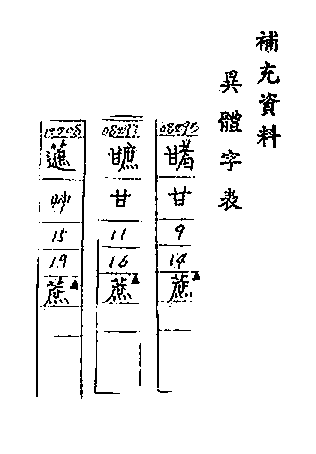 補充資料
異體字表
08295
甘
9
14
蔗▲
08297
甘
11
16
蔗▲
艸
15
19
蔗▲